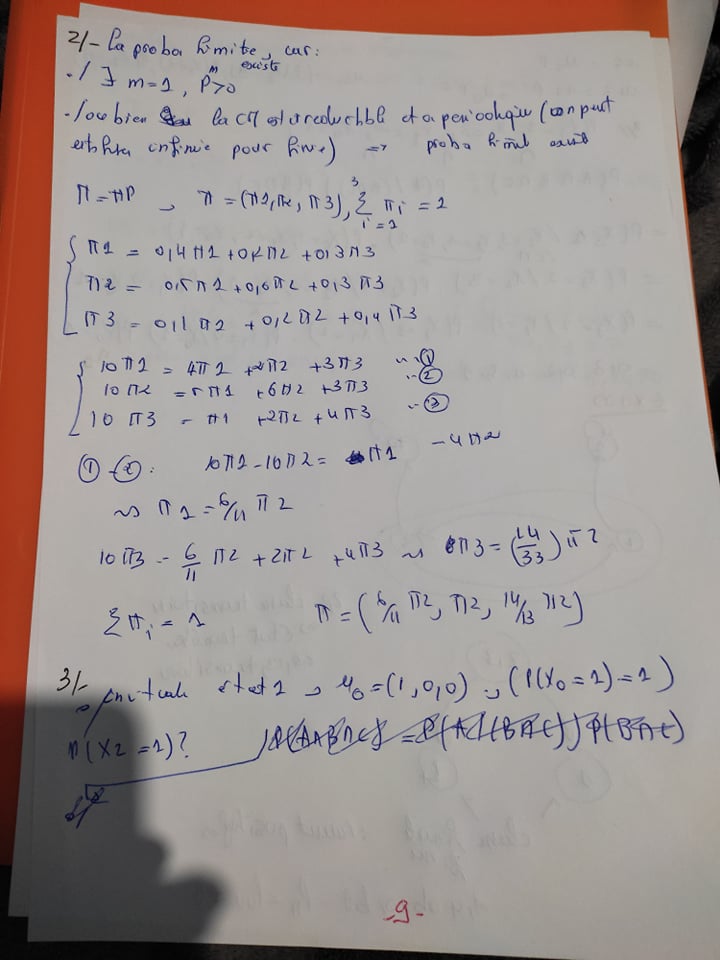 2/- La proba limite, car:
·/ ∃ m=1, P^m>0 existe
·/ou bien la CM est irreductible et aperiodique (on peut
 pour ) ⇒ proba limit existe
Π=ΠP → π = (π1, π2, π3), Σ_{i=1}^{3} πi = 1
π1 = 0,4π1 + 0,2π2 + 0,3π3
π2 = 0,5π1 + 0,6π2 + 0,3π3
π3 = 0,1π1 + 0,2π2 + 0,4π3
10π1 = 4π1 + 2π2 + 3π3 ①
10π2 = 5π1 + 6π2 + 3π3 ②
10π3 = π1 + 2π2 + 4π3 ③
①-②: 10π1 - 10π2 = -π1 - 4π2
⇝ π1 = 6/11 π2
10π3 = 6/11 π2 + 2π2 + 4π3 ⇝ π3 = (14/33) π2
Σπi = 1 π = (6/11 π2, π2, 14/13 π2)
3/- etat 1 → μ0 = (1,0,0), (P(X0=1)=1)
P(X2=1)?
-9-